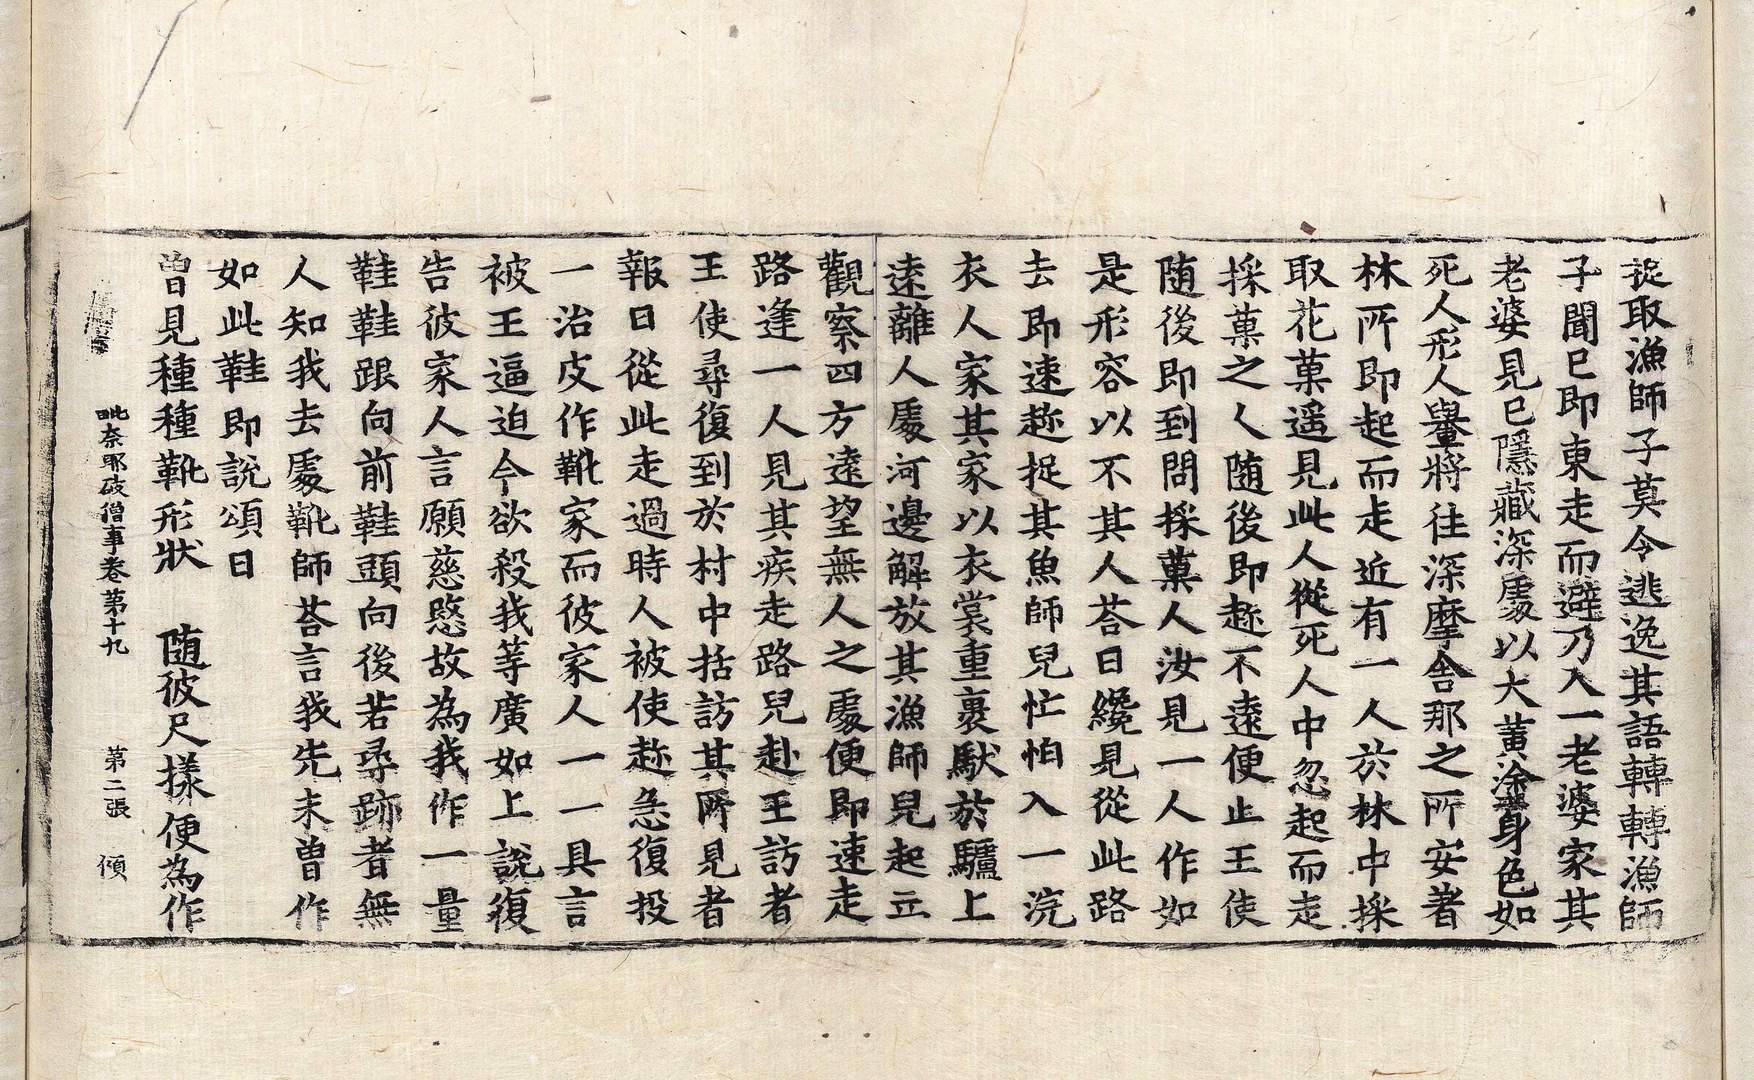 捉取漁師子莫令逃逸其語轉轉漁師
子聞已即東走而避乃入一老婆家其
老婆見已隱藏深處以大黃塗身色如
死人形人轝將往深摩舍那之所安著
林所即起而走近有一人於林中採
取花菓遥見此人從死人中忽起而走
採菓之人随後即趂不遠便止王使
随後即到問採菓人汝見一人作如
是形容以不其人荅曰纔見從此路
去即速趂捉其魚師兒忙怕入一浣
衣人家其家以衣裳重裹馱於驢上
遠離人處河邊解放其漁師兒起立
觀察四方遠望無人之處便即速走
路逢一人見其疾走路兒赴王訪者
王使尋復到於村中括訪其所見者
報曰從此走過時人被使趂急復投
一治皮作靴家而彼家人一一具言
被王逼迫今欲殺我等廣如上說復
告彼家人言願慈愍故為我作一量
鞋鞋跟向前鞋頭向後若尋跡者無
人知我去處靴師荅言我先未曾作
如此鞋即說頌曰
曾見種種靴形狀　随彼尺樣便為作
毗奈耶破僧事卷第十九　第二張　傾